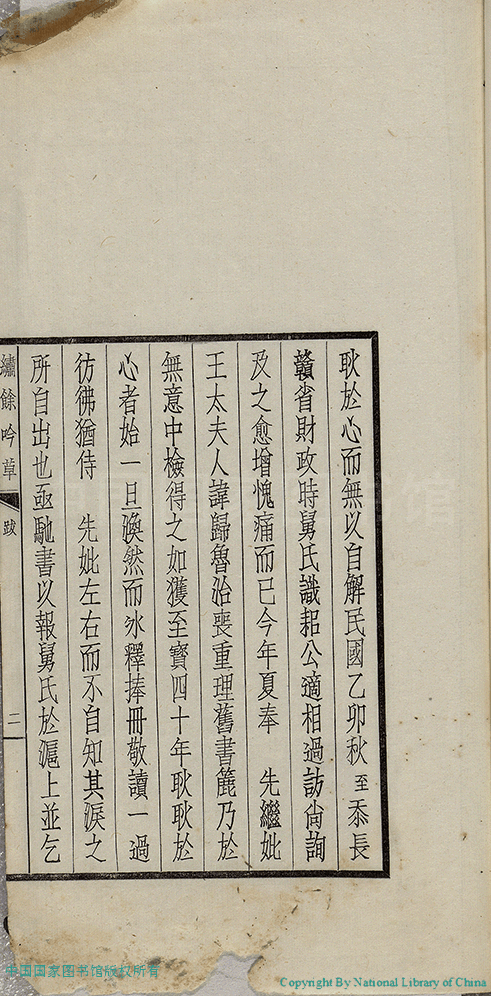 耿於心而無以自解民國乙卯秋至忝長
贛省財政時舅氏識韶公適相過訪尙詢
及之愈增愧痛而已今年夏奉　先繼妣
王太夫人諱歸魯治喪重理舊書簏乃於
無意中檢得之如獲至寶四十年耿耿於
心者始一旦渙然而冰釋捧冊敬讀一過
彷彿猶侍　先妣左右而不自知其淚之
所自出也亟馳書以報舅氏於滬上並乞
繡餘吟草
跋
二
中国国家图书馆版权所有
Copyright By National Library of China